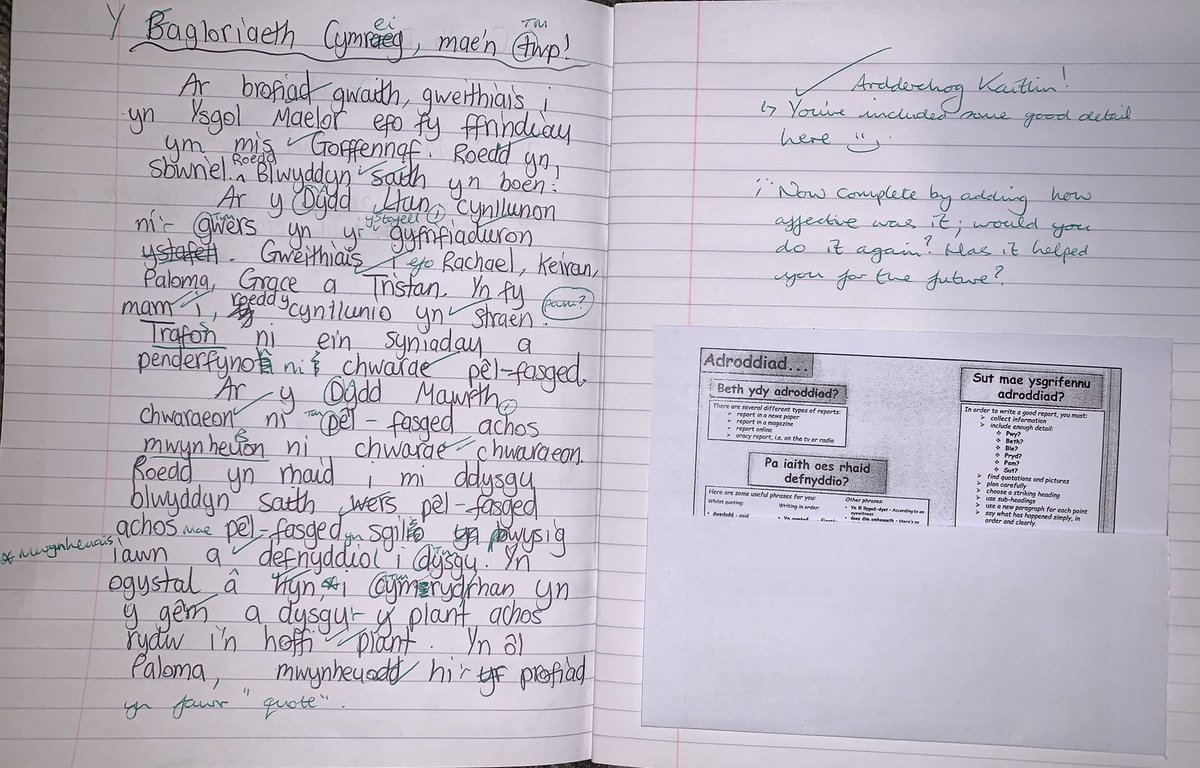 Y Bagloriaeth Cymraeg, mae'n twp!
ei
TM
Ar brofiad gwaith, gweithiais i
yn Ysgol Maelor efo fy ffrindiau
ym mis Gorffennaf. Roedd yn
sbwriel. Roedd Blwyddyn saith yn boen.
Ar y Dydd Llun, cynllunon
ni gwers yn yr ystafell gyfrifiaduron
ystafell. Gweithiais i efo Rachael, Keiran,
Paloma, Grace a Tristan. Yn fy
marn i, roedd y cynllunio yn straen. pam?
Trafon ni ein syniadau a
penderfynon ni chwarae pêl-fasged.
Ar y Dydd Mawrth,
chwaraeon ni pêl-fasged achos
mwynheuon ni chwarae chwaraeon.
Roedd yn rhaid i mi ddysgu
blwyddyn saith, wers pêl-fasged
achos mae pêl-fasged yn sgil pwysig
iawn a defnyddiol i dysgu. Yn
mwynheuais
ogystal â hyn, i cymryd rhan yn
y gêm a dysgu y plant achos
rydw i'n hoffi plant. Yn ôl
Paloma, mwynheuodd hi yr profiad
yn fawr "quote".
Ardderchog Kaitlin!
↳ You've included some good detail
here
∴ Now complete by adding how
affective was it; would you
do it again? Has it helped
you for the future?
Adroddiad...
Beth ydy adroddiad?
There are several different types of reports:
➢ report in a news paper
➢ report in a magazine
➢ report online
➢ oracy report, i.e. on the tv or radio
Pa iaith oes rhaid
defnyddio?
Here are some useful phrases for you:
Whilst quoting:
Writing in order:
Other phrases:
➢ dwedodd - said
➢ Yn ôl llygad-dyst - According to an
eyewitness
➢ does dim amheuaeth - there's no
Sut mae ysgrifennu
adroddiad?
In order to write a good report, you must:
➢ collect information
➢ include enough detail:
❖ Pwy?
❖ Beth?
❖ Ble?
❖ Pryd?
❖ Pam?
❖ Sut?
➢ find quotations and pictures
➢ plan carefully
➢ choose a striking heading
➢ use sub-headings
➢ use a new paragraph for each point
➢ say what has happened simply, in
order and clearly.